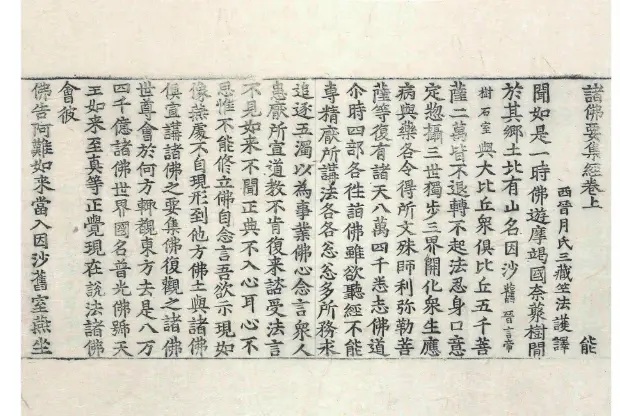 諸佛要集經卷上 能
西晉月氏三藏竺法護譯
聞如是一時佛遊摩竭國奈叢樹間
於其鄉土北有山名因沙舊晉言帝
樹石室與大比丘衆俱比丘五千菩
薩二萬皆不退轉不起法忍身口意
定惣攝三世獨步三界開化衆生應
病與藥各令得所文殊師利弥勒菩
薩等復有諸天八萬四千悉志佛道
尒時四部各往詣佛雖欲聽經不能
專精厭所講法各各忩忩多所務求
追逐五濁以為事業佛心念言衆人
患厭所宣道教不肯復來諮受法言
不見如來不聞正典不入心耳心不
思惟不能修立佛自念言吾欲示現如
像燕處不自現形到他方佛土與諸佛
俱宣講諸佛之要集佛復觀之諸佛
世尊會於何方輒觀東方去是八万
四千億諸佛世界國名普光佛號天
王如來至真等正覺現在說法諸佛
會彼
佛告阿難如來當入因沙舊室燕坐